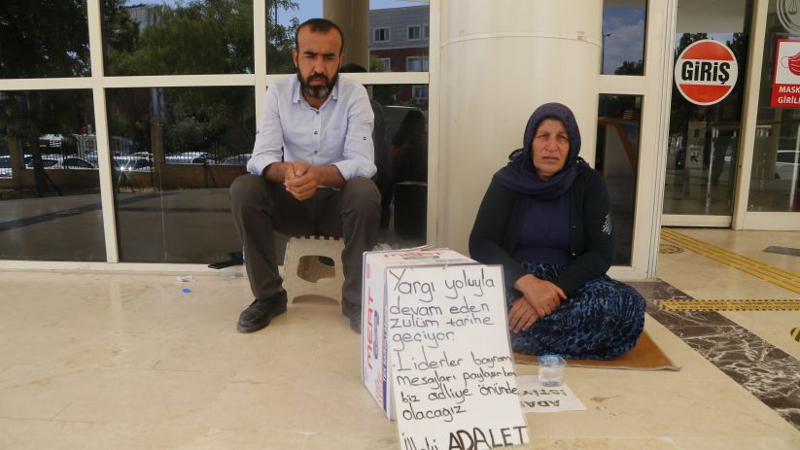 GİRİŞ
MASK
GİRİL
Yargı yoluyla
devam eden
zulüm tarihe
geçiyor.
Liderler bayram
mesajları paylaşırken
biz adliye önünde
olacağız
ADALET
MERT
ADAL
İSTİY